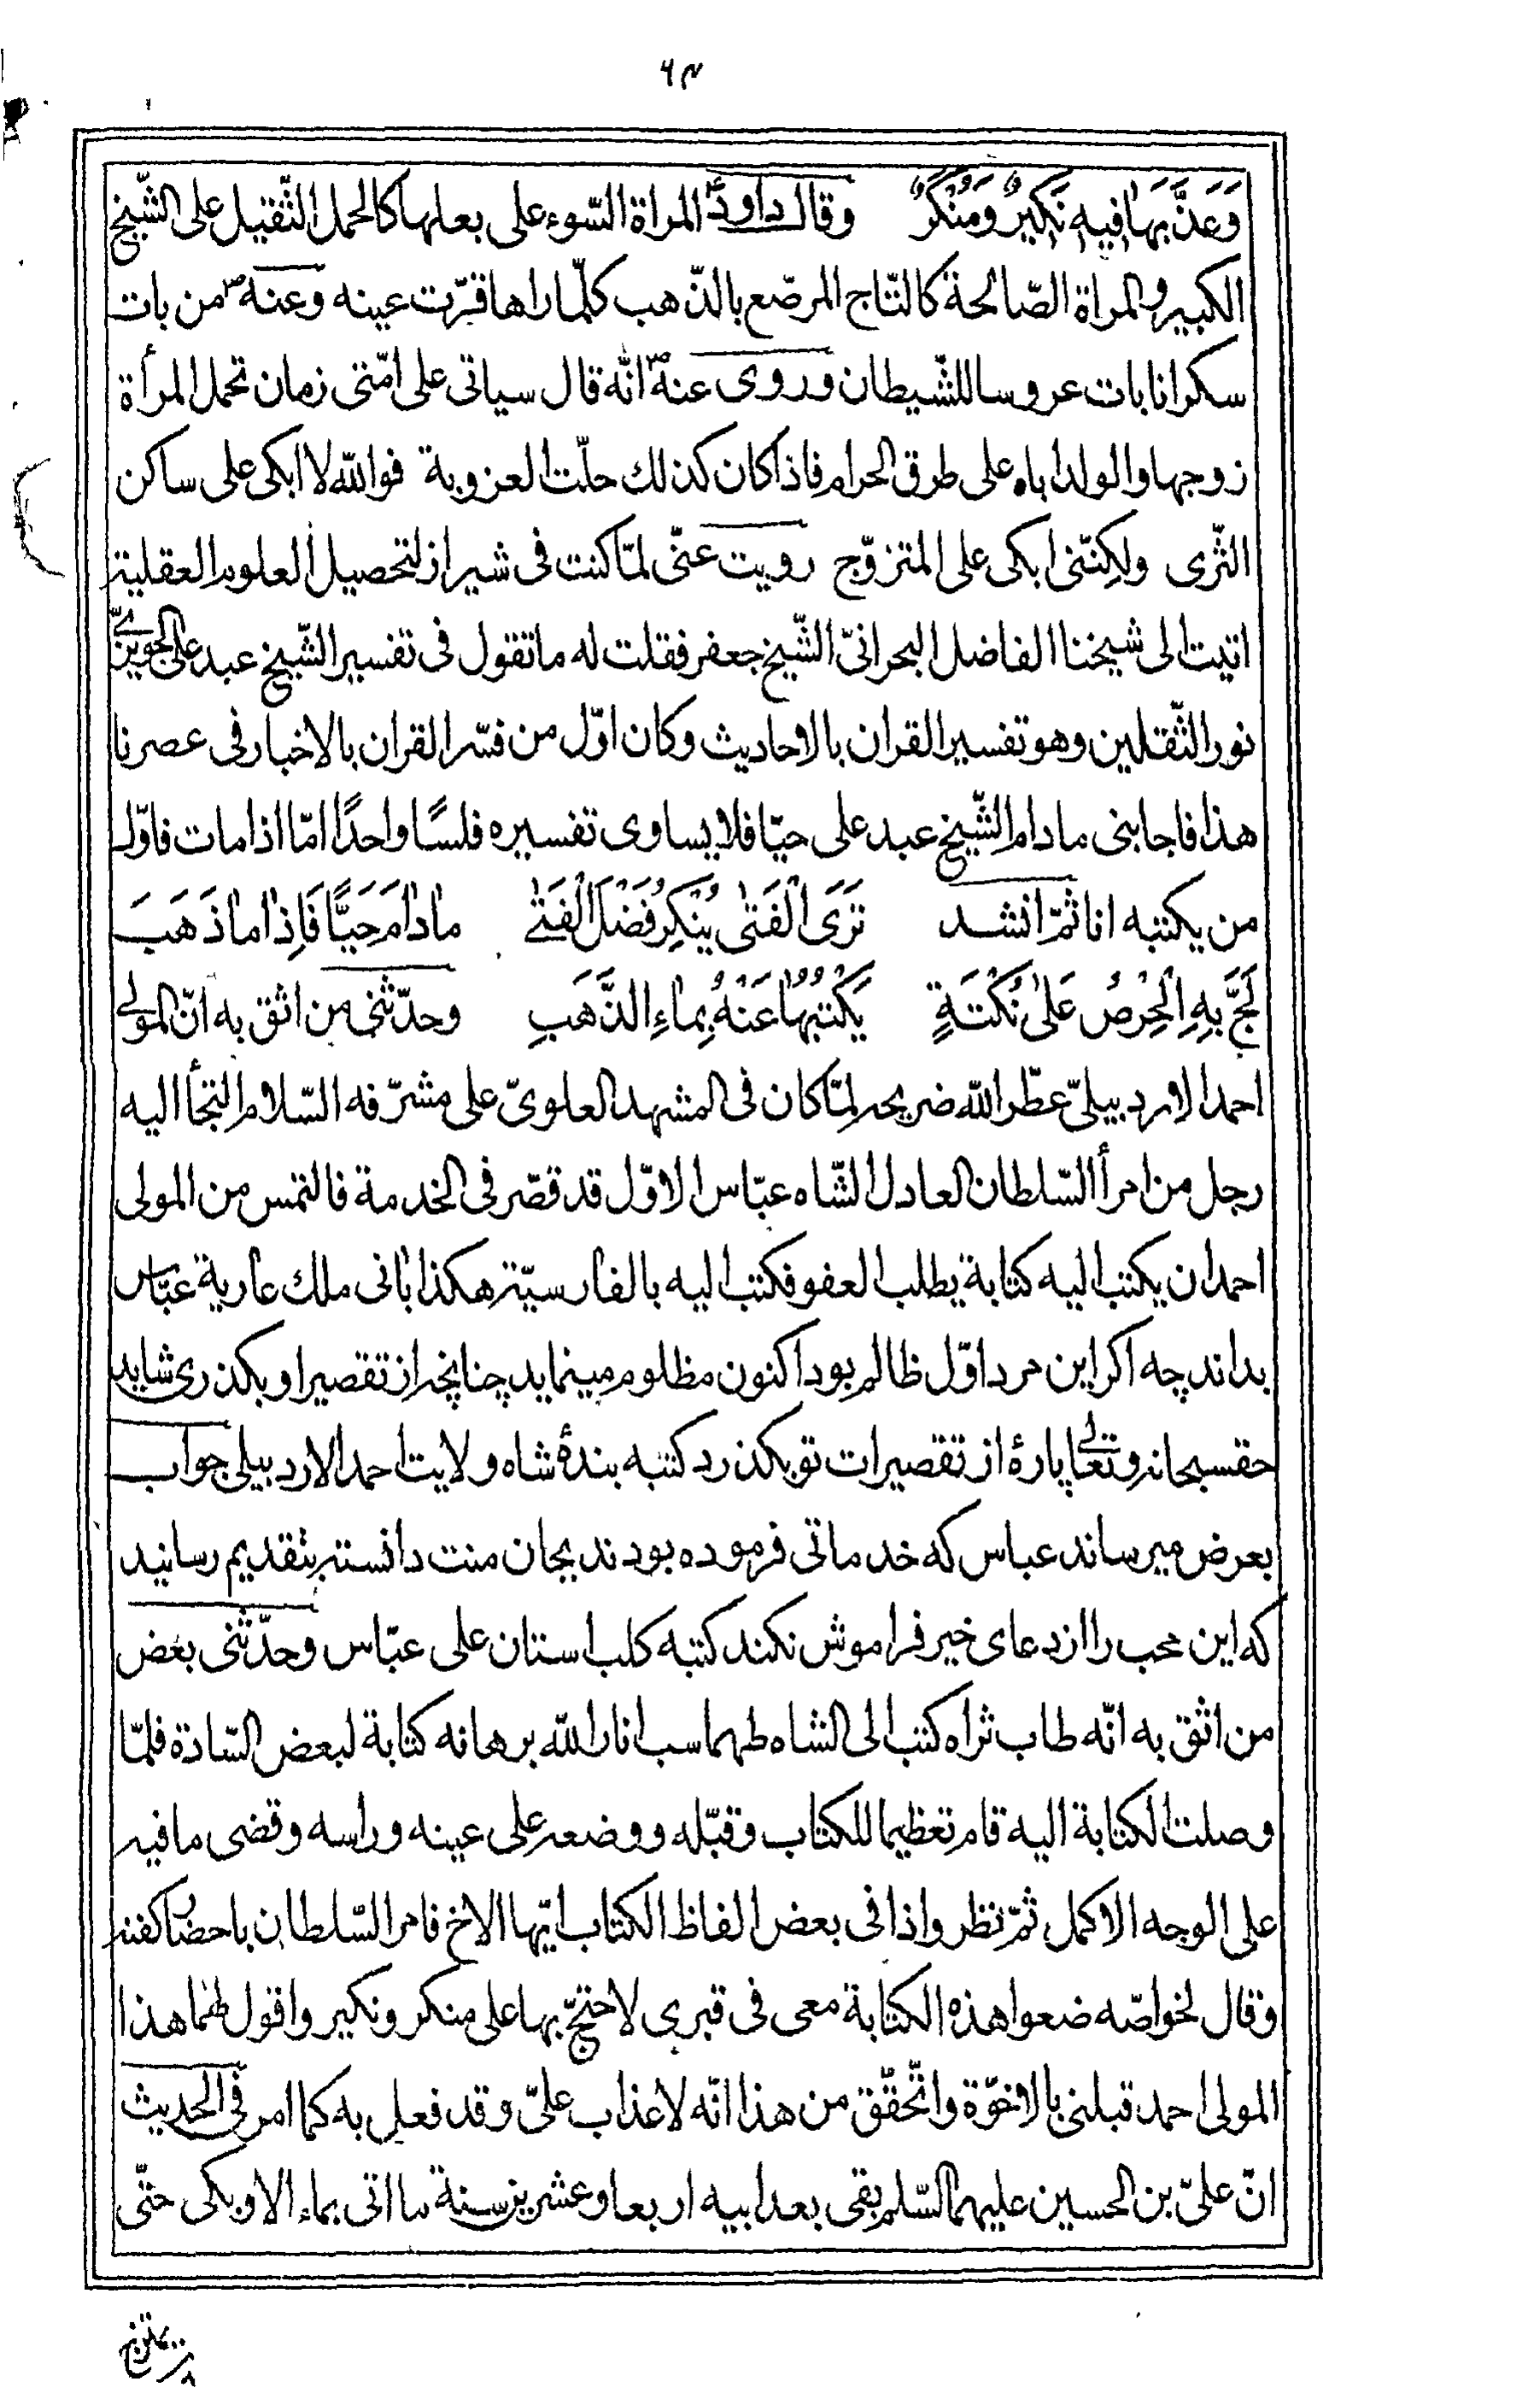 ٦٣
وَعَذَّبَهَا فِيهِ نَكِيرٌ وَمُنْكَرٌ وقال داودؑ المراة السّوء على بعلها كالحمل الثّقيل على الشّيخ
الكبير والمراة الصّالحة كالتّاج المرصّع بالذّهب كلّما راها قرّت عينه وعنهؐ من بات
سكرانا بات عروسا للشّيطان وروى عنهؐ انّه قال سياتى على امّتى زمان تحمل المرأة
زوجها والولد اباه على طرق الحرام فاذا كان كذلك حلّت العزوبة فوالله لا ابكى على ساكن
الثّرى ولكنّنى ابكى على المتزوّج رويت عنّى لمّا كنت فى شيراز لتحصيل العلوم العقلية
اتيت الى شيخنا الفاضل البحرانىّ الشّيخ جعفر فقلت له ما تقول فى تفسير الشّيخ عبد على الحويزىّ
نور الثّقلين وهو تفسير القران بالاحاديث وكان اوّل من فسّر القران بالاخبار فى عصرنا
هذا فاجابنى مادام الشّيخ عبد على حيّا فلا يساوى تفسيره فلسًا واحدًا امّا اذا مات فاوّل
من يكتبه انا ثمّ انشد تَرَى الْفَتىٰ يُنْكِرُ فَضْلَ الْفَتىٰ مادامَ حَيًّا فَاِذا ماذَهَبَ
لَجَّ بِهِ الْحِرْصُ عَلىٰ نُكْتَةٍ يَكْتُبُهٰا عَنْهُ بِماءِ الذَّهَبِ وحدّثنى من اثق به انّ المولى
احمد الاردبيلىّ عطّر الله ضريحه لمّا كان فى المشهد العلوىّ على مشرّفه السّلام التجأ اليه
رجل من امرأ السّلطان العادل الشّاه عبّاس الاوّل قد قصّر فى الخدمة فالتمس من المولى
احمد ان يكتب اليه كتابة يطلب العفو فكتب اليه بالفارسيّة هكذا بانى ملك عارية عبّاس
بداند چه اكر اين مرد اوّل ظالم بود اكنون مظلوم مينمايد چنانچه از تقصير او بكذرى شايد
حقسبحانه وتعالى پارۀ از تقصيرات تو بكذرد كتبه بندۀ شاه ولايت احمد الاردبيلى جواب
بعرض ميرساند عباس كه خدماتى فرموده بودند بجان منت دانسته بتقديم رسانيد
كه اين محب را از دعاى خير فراموش نكنند كتبه كلب استان على عبّاس وحدّثنى بعض
من اثق به انّه طاب ثراه كتب الى الشاه طهماسب انار الله برهانه كتابة لبعض السّادة فلمّا
وصلت الكتابة اليه قام تعظيما للكتاب وقبّله ووضعه على عينه وراسه وقضى ما فيه
على الوجه الاكمل ثمّ نظر واذا فى بعض الفاظ الكتاب ايّها الاخ فامر السّلطان باحضار كفنه
وقال لخواصّه ضعوا هذه الكتابة معى فى قبرى لاحتجّ بها على منكر ونكير واقول لهما هذا
المولى احمد قبلنى بالاخوّة واتّحقّق من هذا انّه لا عذاب علىّ وقد فعل به كما امر فى الحديث
انّ علىّ بن الحسين عليهما السّلم بقى بعد ابيه اربعا وعشرين سنة ما اتى بماء الا وبكى حتّى